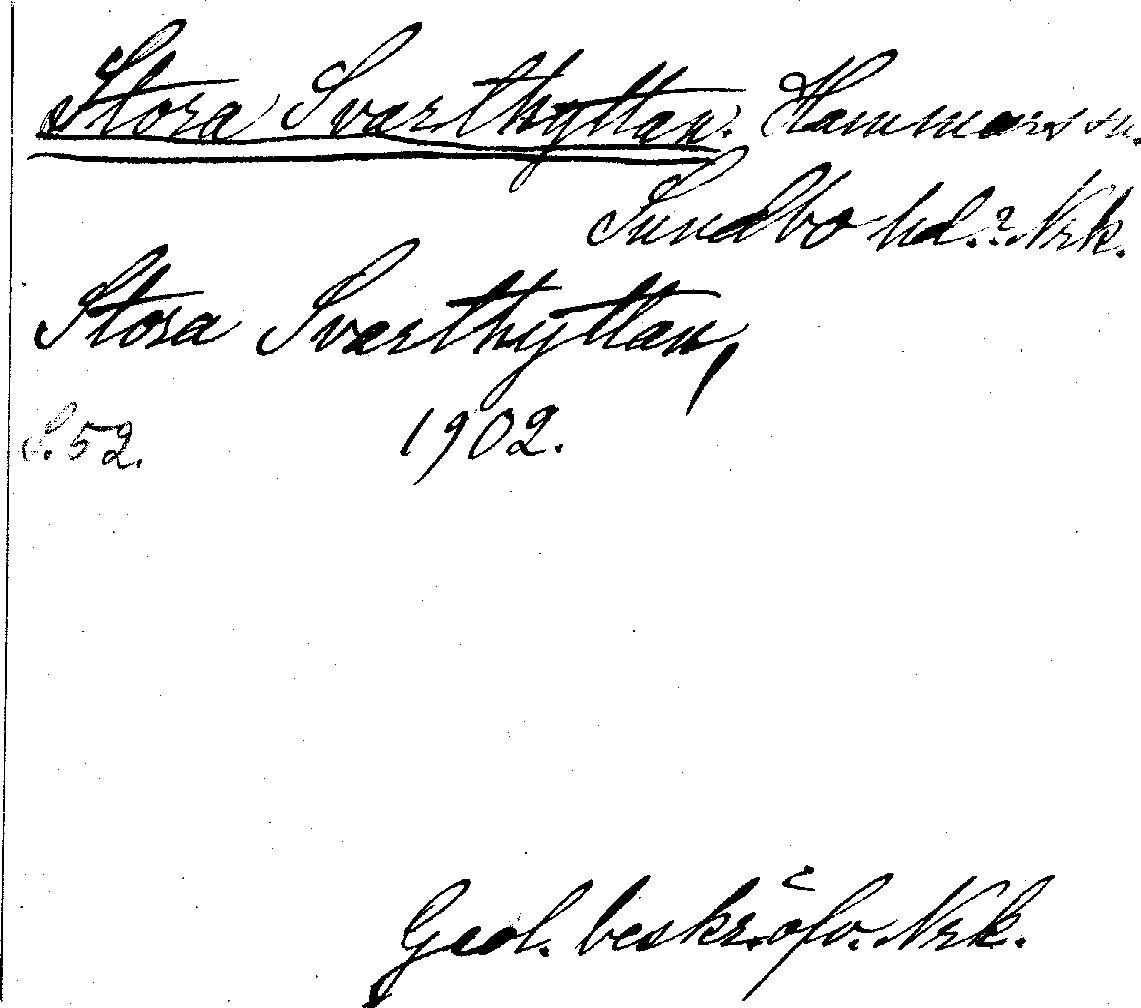 Stora Svarthyttan. Hammars sn.
Sundbo hd.? Nrk.
Stora Svarthyttan,
S. 52. 1902.
Geol. beskr. öfv. Nrk.